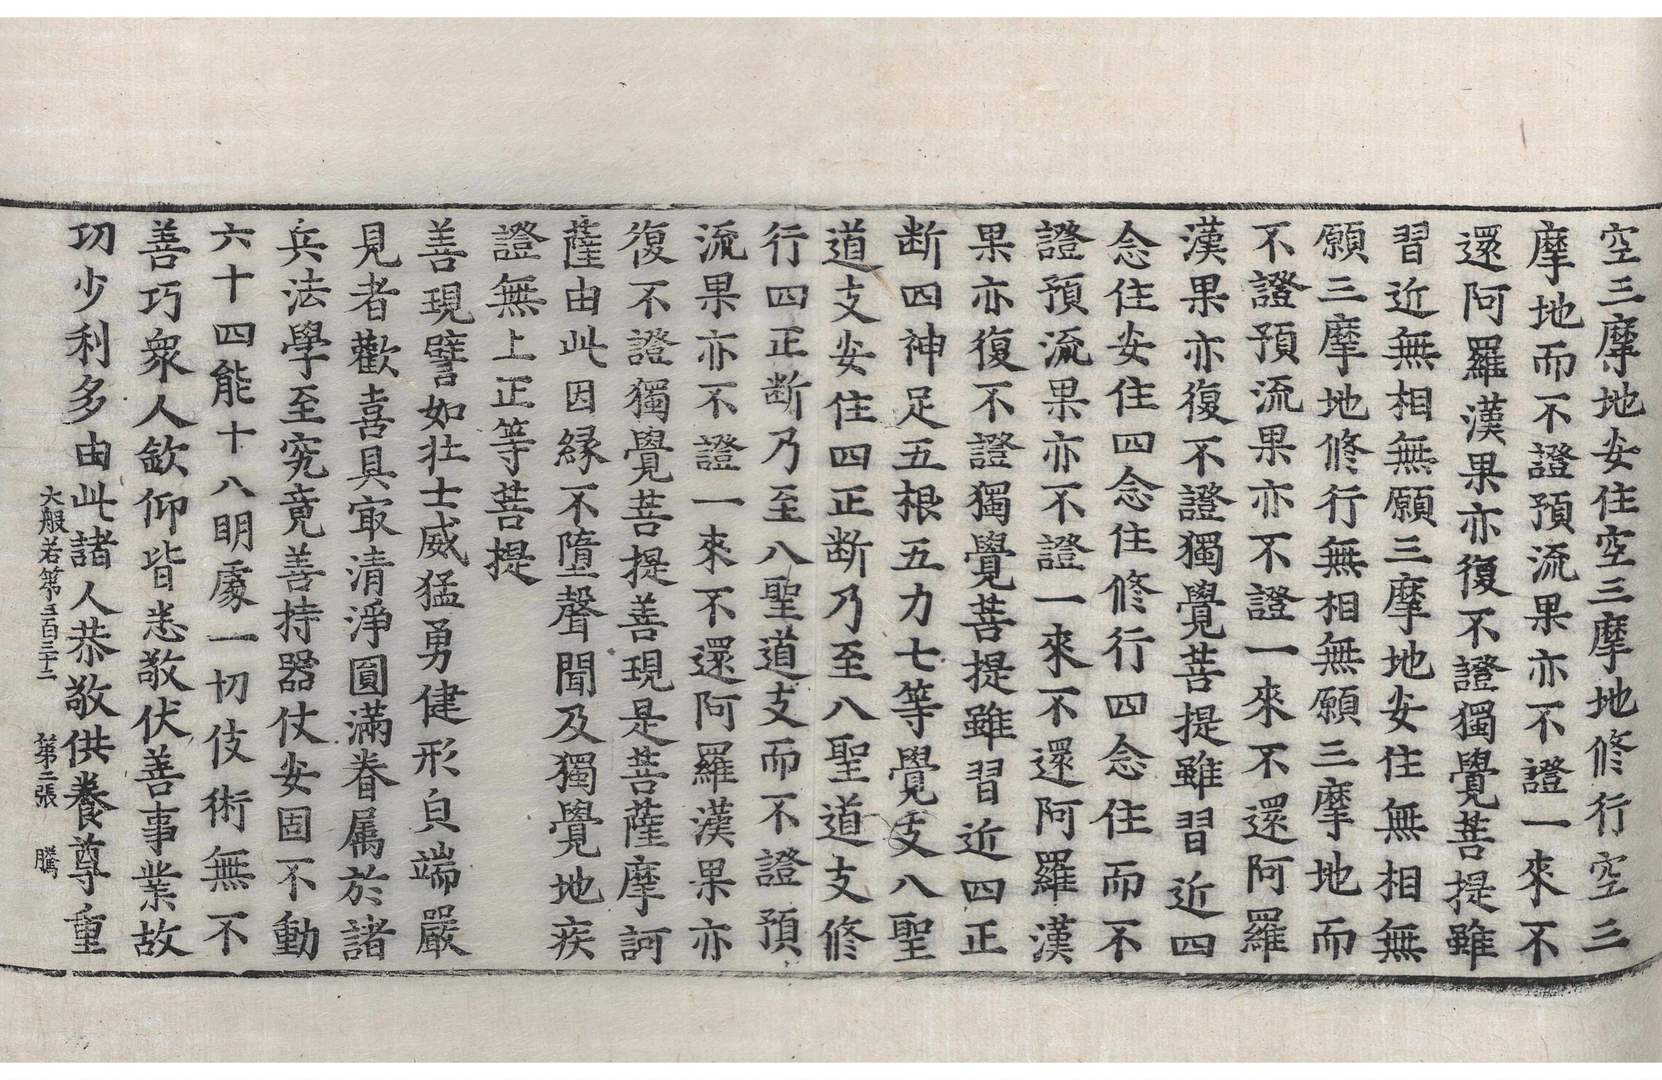 空三摩地安住空三摩地修行空三
摩地而不證預流果亦不證一來不
還阿羅漢果亦復不證獨覺菩提雖
習近無相無願三摩地安住無相無
願三摩地修行無相無願三摩地而
不證預流果亦不證一來不還阿羅
漢果亦復不證獨覺菩提雖習近四
念住安住四念住修行四念住而不
證預流果亦不證一來不還阿羅漢
果亦復不證獨覺菩提雖習近四正
断四神足五根五力七等覺支八聖
道支安住四正断乃至八聖道支修
行四正断乃至八聖道支而不證預
流果亦不證一來不還阿羅漢果亦
復不證獨覺菩提善現是菩薩摩訶
薩由此因縁不墮聲聞及獨覺地疾
證無上正等菩提
善現譬如壮士威猛勇健形皃端嚴
見者歡喜具㝡清淨圓滿眷属於諸
兵法學至究竟善持器仗安固不動
六十四能十八明處一切伎術無不
善巧衆人欽仰皆悉敬伏善事業故
功少利多由此諸人恭敬供養尊重
大般若第三百三十二 第二張 騰